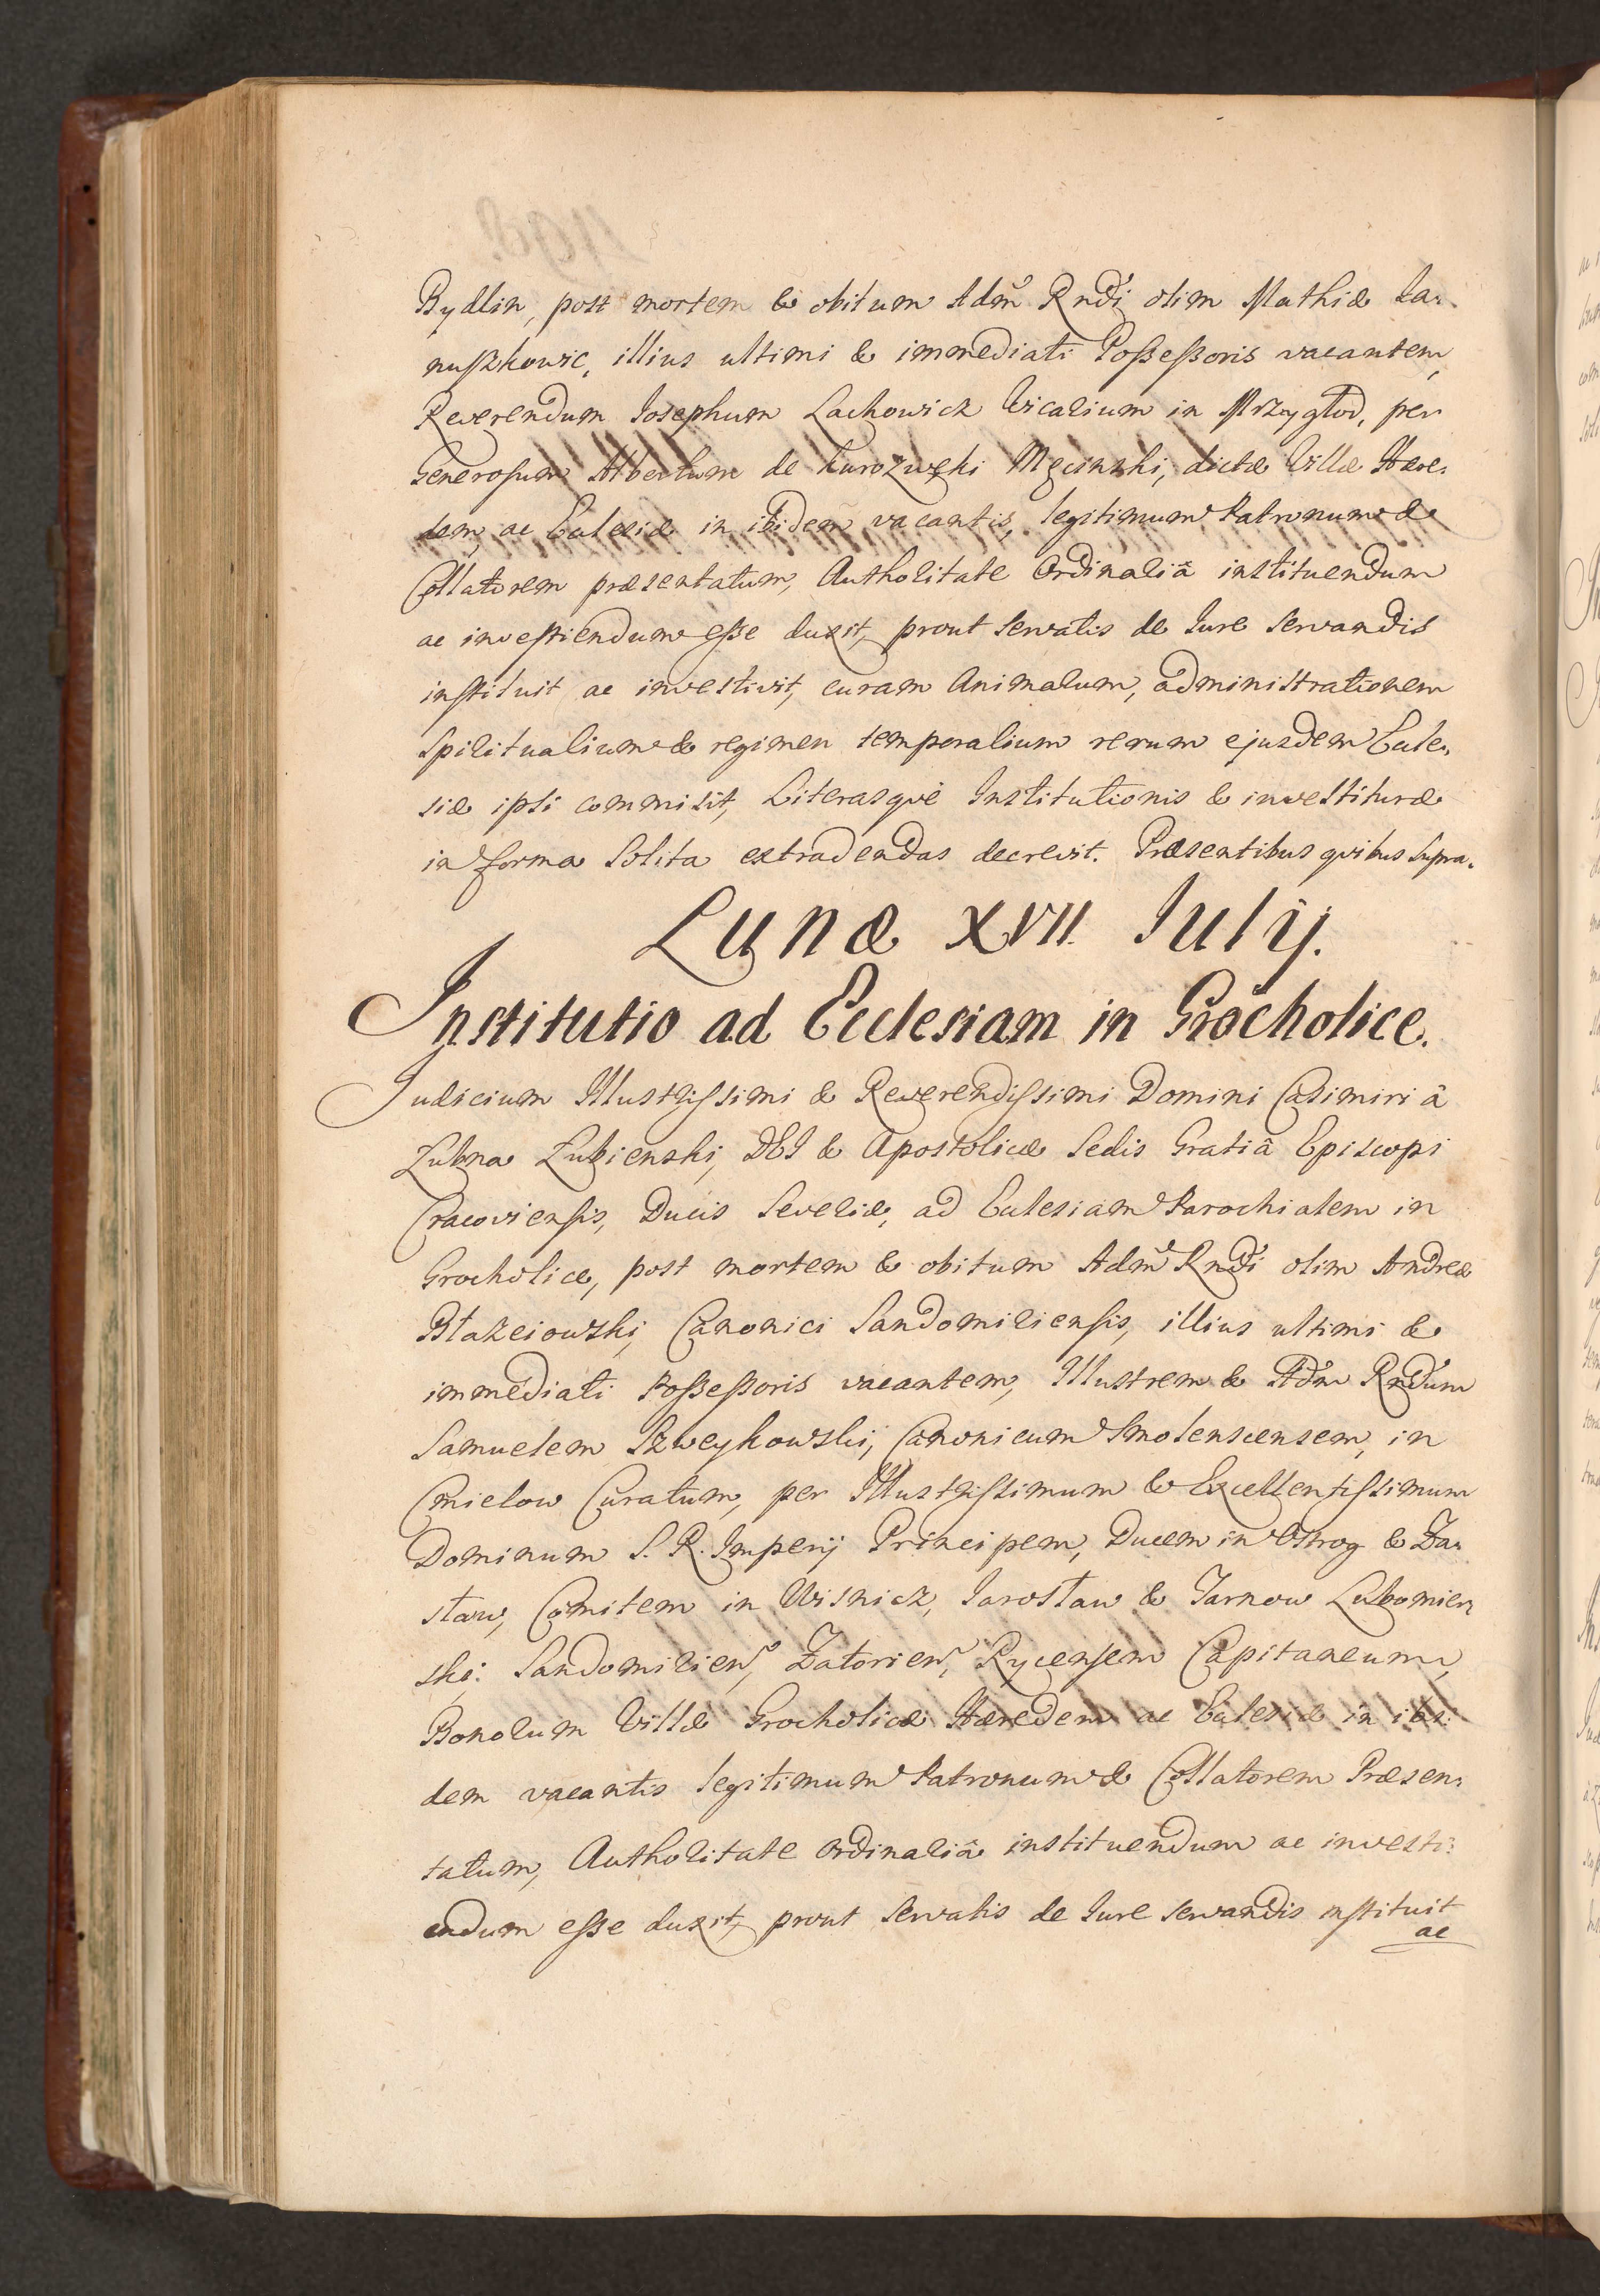 Bydlin, post mortem & obitum Adm̃ Rndi olim Mathiæ Ia-
nuszkowic, illius ultimi & immediati Possessoris vacantem,
Reverendum Iosephum Lachowicz Vicarium in Mrzygłod, per
Generosum Albertum de Kurozwęki Męcinski, dictæ Villæ Hære-
dem, ac Ecclesiæ in ibidem vacantis, legitimum Patronum &
Collatorem præsentatum, Authoritate Ordinariâ instituendum
ac investiendum esse duxit, prout servatis de Iure servandis
instituit ac investivit, curam Animarum, administrationem
Spiritualium & regimen temporalium rerum ejusdem Eccle-
siæ ipsi commisit, Literasque Institutionis & investituræ
in forma solita extradendas decrevit. Præsentibus quibus supra.
Lunæ XVII. Iulij.
Institutio ad Ecclesiam in Grocholice.
Iudicium Illustrissimi & Reverendissimi Domini Casimiri â
Łubna Łubienski, DEI & Apostolicæ Sedis Gratiâ Episcopi
Cracoviensis, Ducis Severiæ, ad Ecclesiam Parochialem in
Grocholice, post mortem & obitum Adm̃ Rndi olim Andreæ
Błażeiowski, Canonici Sandomiriensis, illius ultimi &
immediati Possessoris vacantem, Illustrem & Adm Rndum
Samuelem Szweykowski, Canonicum Smolenscensem, in
Cmielow Curatum, per Illustrissimum & Excellentissimum
Dominum S. R. Imperij Principem, Ducem in Ostrog & Za-
sław, Comitem in Wisnicz, Iarosław & Tarnow Lubomier-
ski: Sandomirien, Zatorien, Rycensem Capitaneum,
Bonorum Villæ Grocholice Hæredem ac Ecclesiæ in ibi-
dem vacantis legitimum Patronum & Collatorem Præsen-
tatum, Authoritate Ordinariâ instituendum ac investi-
endum esse duxit, prout servatis de Iure servandis instituit
ac